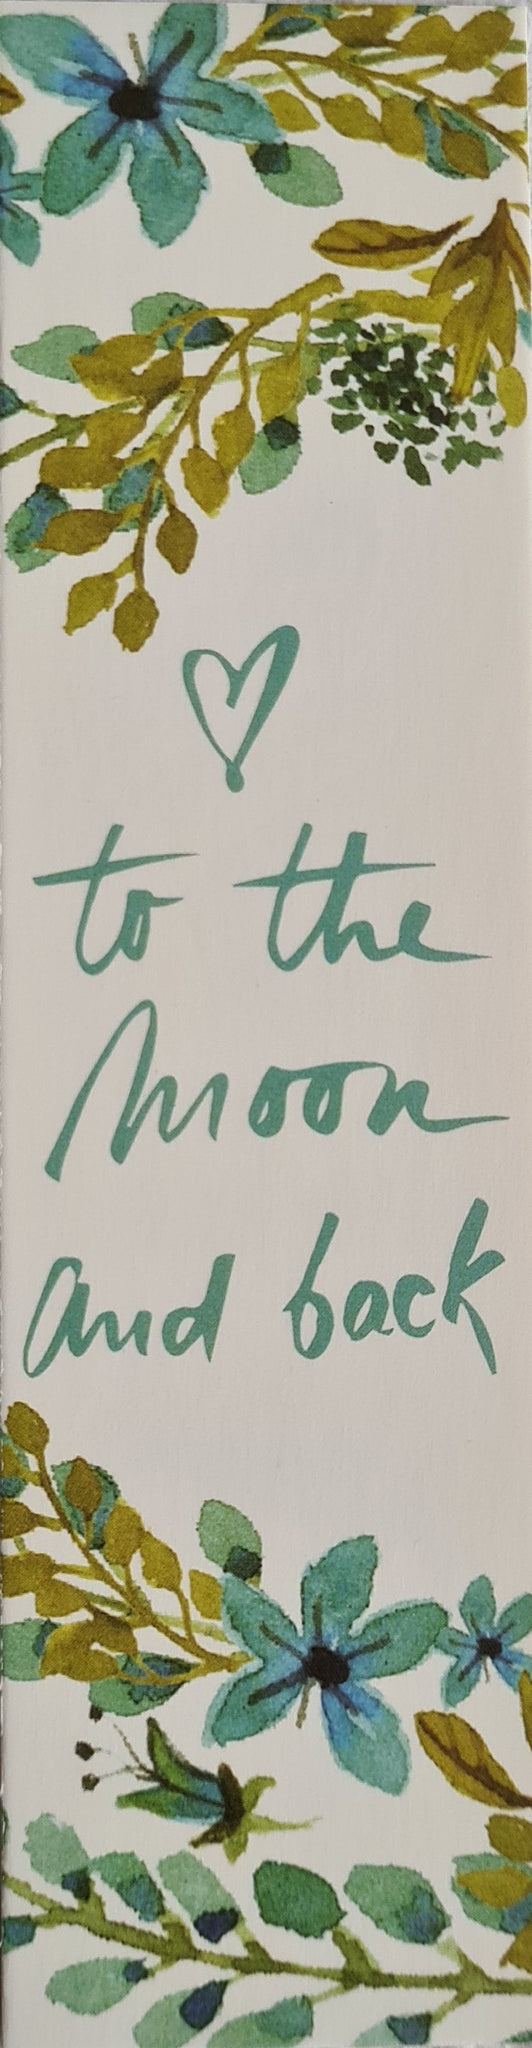 ♡
to the
Moon
and back